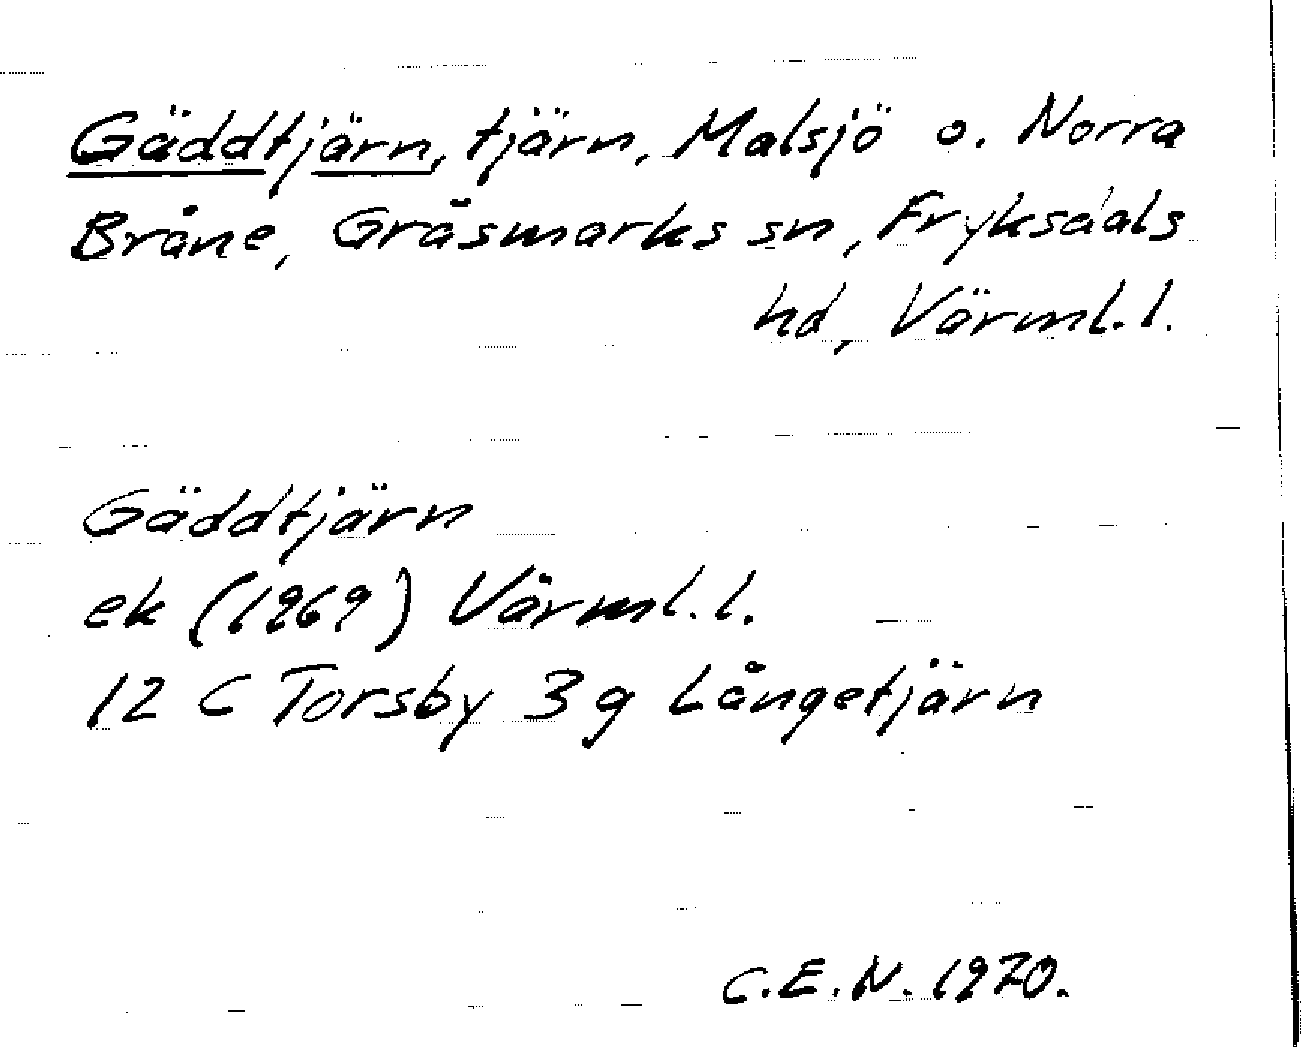 Gäddtjärn, tjärn, Malsjö o. Norra
Bråne, Gräsmarks sn, Fryksdals
hd, Värml.l.
Gäddtjärn
ek (1969) Värml.l.
12 C Torsby 3 g Långetjärn
C.E.N. 1970.